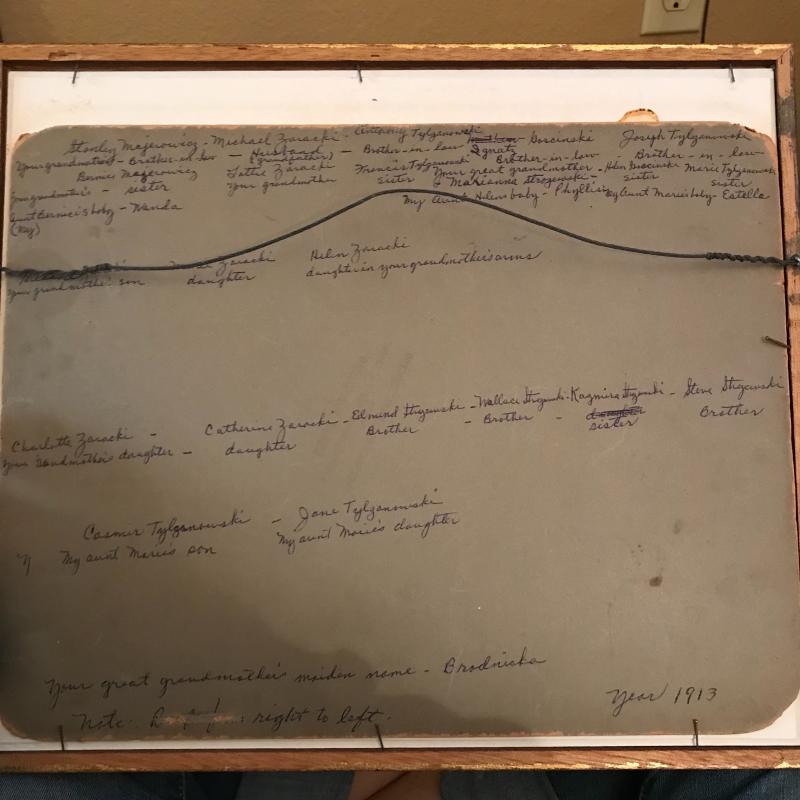 Stanley Majerowicz - Michael Zaracki - Anthony Tylzanowski - Goscinski Joseph Tylzanowski
Your grandmother's - Brother-in-law - Husband - Brother-in-law Ignatz - Brother-in-law
(grandfather) Brother-in-law
Bernice Majerowicz Tattie Zaracki Francis Tylzanowski Your great grandmother - Helen Goscinski Marie Tylzanowski
Your grandmother's - sister Your grandmother sister Marianna Strozewski - sister sister
Aunt Bernice's baby - Wanda My Aunt Helen's baby - Phyllis My Aunt Marie's baby - Estella
(My)
Zaracki Helen Zaracki
Your grandmother's son daughter daughter in your grandmother's arms
Charlotte Zaracki - Catherine Zaracki - Edmund Strozewski - Wallace - Kazmira - Steve
Your grandmother's daughter - daughter Brother - Brother - daughter Brother
sister
Casmir Tylzanowski - Jane Tylzanowski
My aunt Marie's son My aunt Marie's daughter
Your great grandmother's maiden name - Brodnicka
Year 1913
Note: right to left.